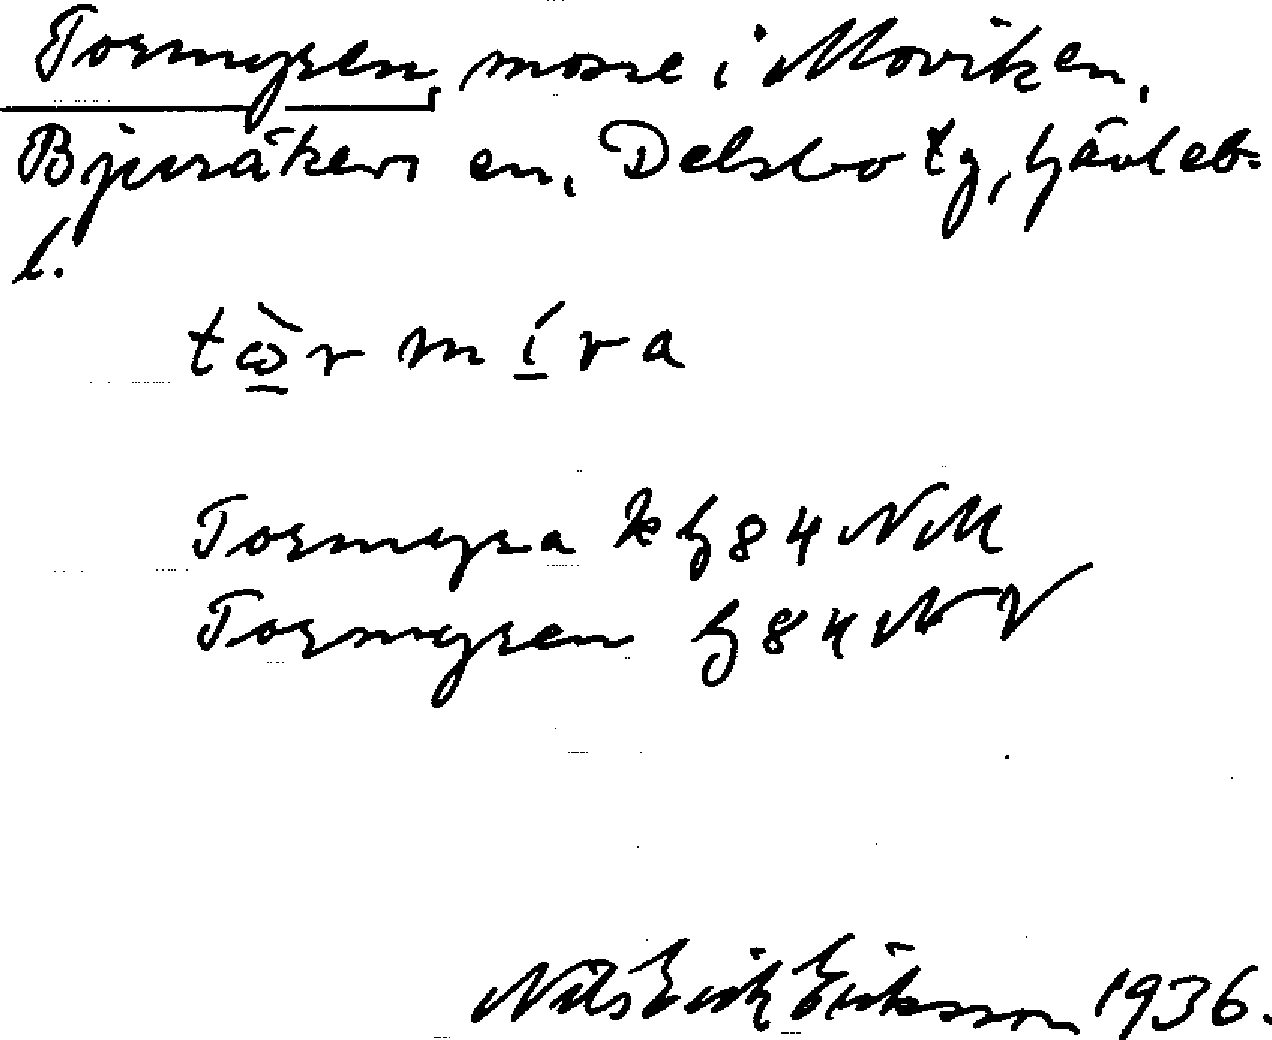 Tormyren, mosse i Moviken,
Bjuråkers sn, Delsbo tg, Gävleb.
l.
tὼ̲r mí̲ra
Tormyra k G84 NM
Tormyren G84 NV
Nils Erik Eriksson 1936.